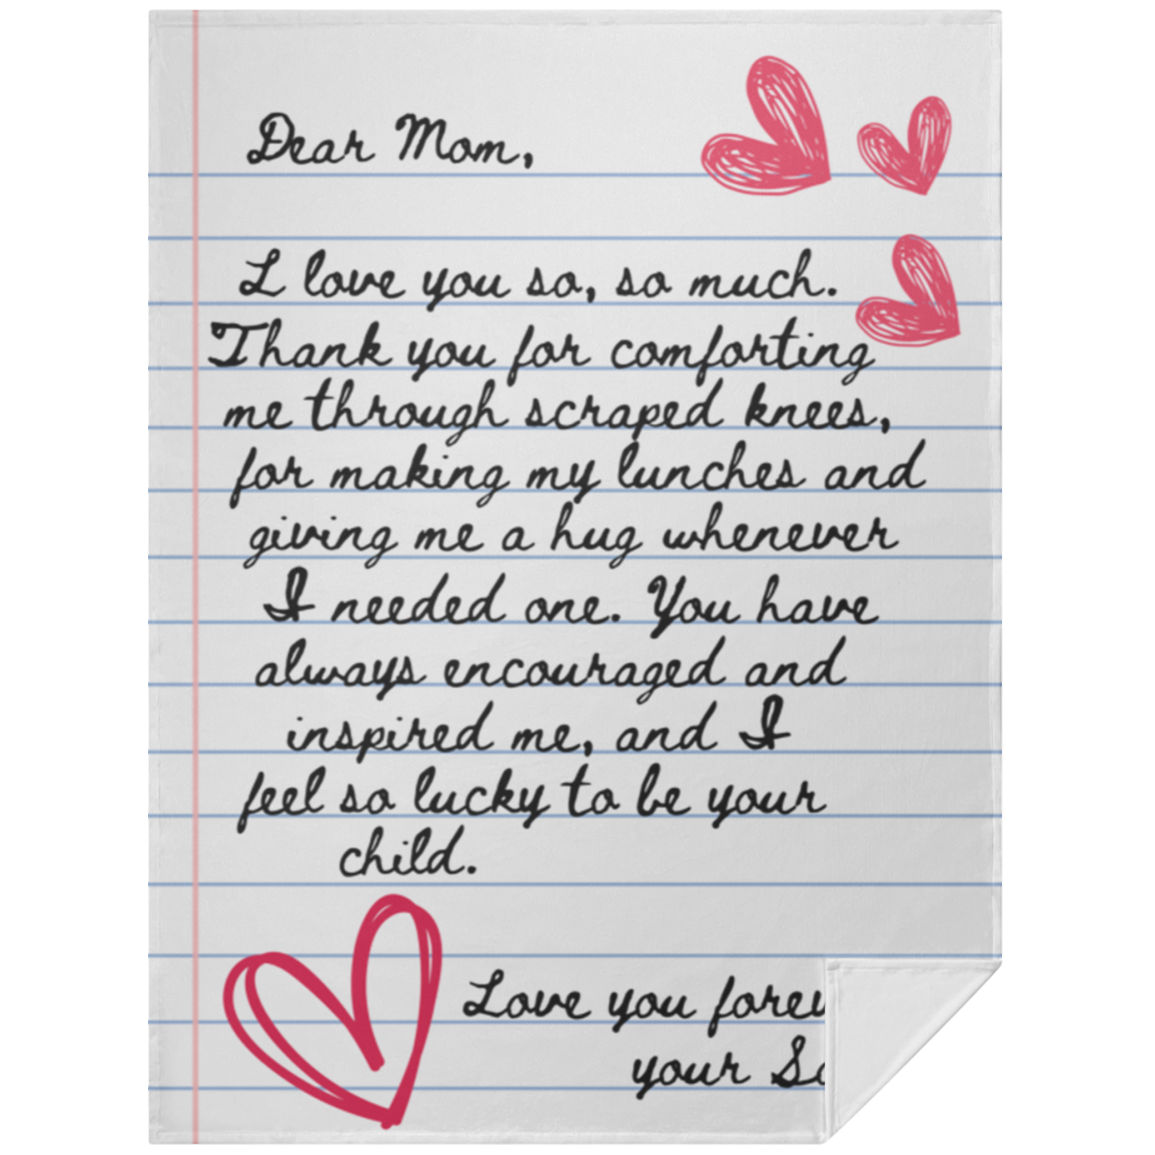 Dear Mom,
I love you so, so much.
Thank you for comforting
me through scraped knees,
for making my lunches and
giving me a hug whenever
I needed one. You have
always encouraged and
inspired me, and I
feel so lucky to be your
child.
Love you
your